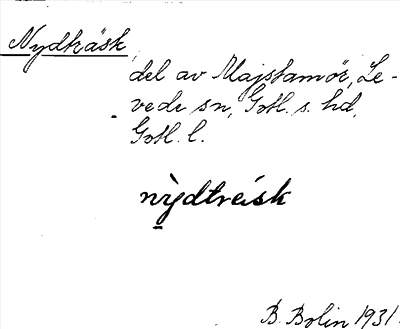 Nydträsk,
del av Majstamör, Le-
vede sn, Gotl. s. hd,
Gotl. l.
nỳdtreisk
B. Bolin 1931.